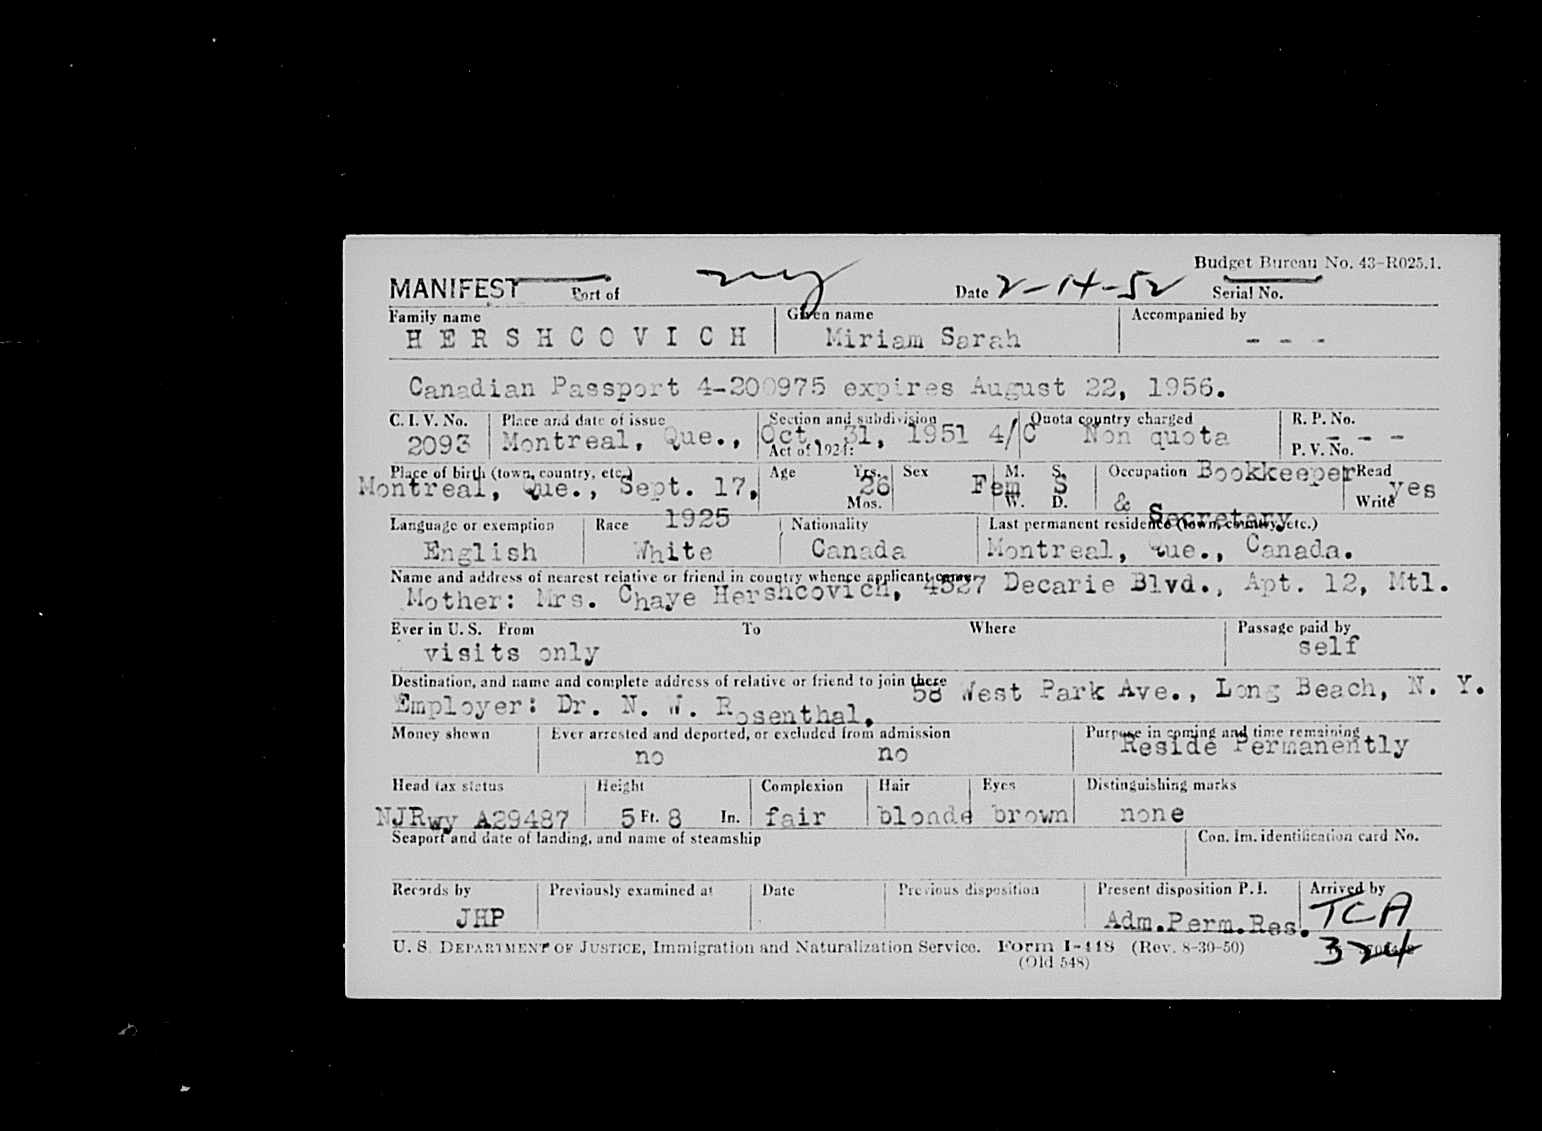 Budget Bureau No. 43-R025.1.
MANIFEST Port of NY Date 2-14-52 Serial No.
Family name Given name Accompanied by
HERSHCOVICH Miriam Sarah - - -
Canadian Passport 4-200975 expires August 22, 1956.
C. I. V. No. Place and date of issue Section and subdivision Quota country charged R. P. No.
2093 Montreal, Que., Oct. 31, 1951 4/C Non quota - - -
Act of 1924: P. V. No.
Place of birth (town, country, etc.) Age Yrs. Sex M. S. Occupation Bookkeeper Read
Montreal, Que., Sept. 17, 26 Fem S yes
Mos. W. D. & Secretary Write
1925
Language or exemption Race Nationality Last permanent residence (town, country, etc.)
English White Canada Montreal, Que., Canada.
Name and address of nearest relative or friend in country whence applicant came
Mother: Mrs. Chaye Hershcovich, 4527 Decarie Blvd., Apt. 12, Mtl.
Ever in U. S. From To Where Passage paid by
visits only self
Destination, and name and complete address of relative or friend to join there
58 West Park Ave., Long Beach, N. Y.
Employer: Dr. N. W. Rosenthal,
Money shown Ever arrested and deported, or excluded from admission Purpose in coming and time remaining
no no Reside Permanently
Head tax status Height Complexion Hair Eyes Distinguishing marks
NJRwy A29487 5 Ft. 8 In. fair blonde brown none
Seaport and date of landing, and name of steamship Con. Im. identification card No.
Records by Previously examined at Date Previous disposition Present disposition P. I. Arrived by
JHP Adm.Perm.Res. TCA
U. S. DEPARTMENT OF JUSTICE, Immigration and Naturalization Service. Form I-448 (Rev. 8-30-50) 324
(Old 548)